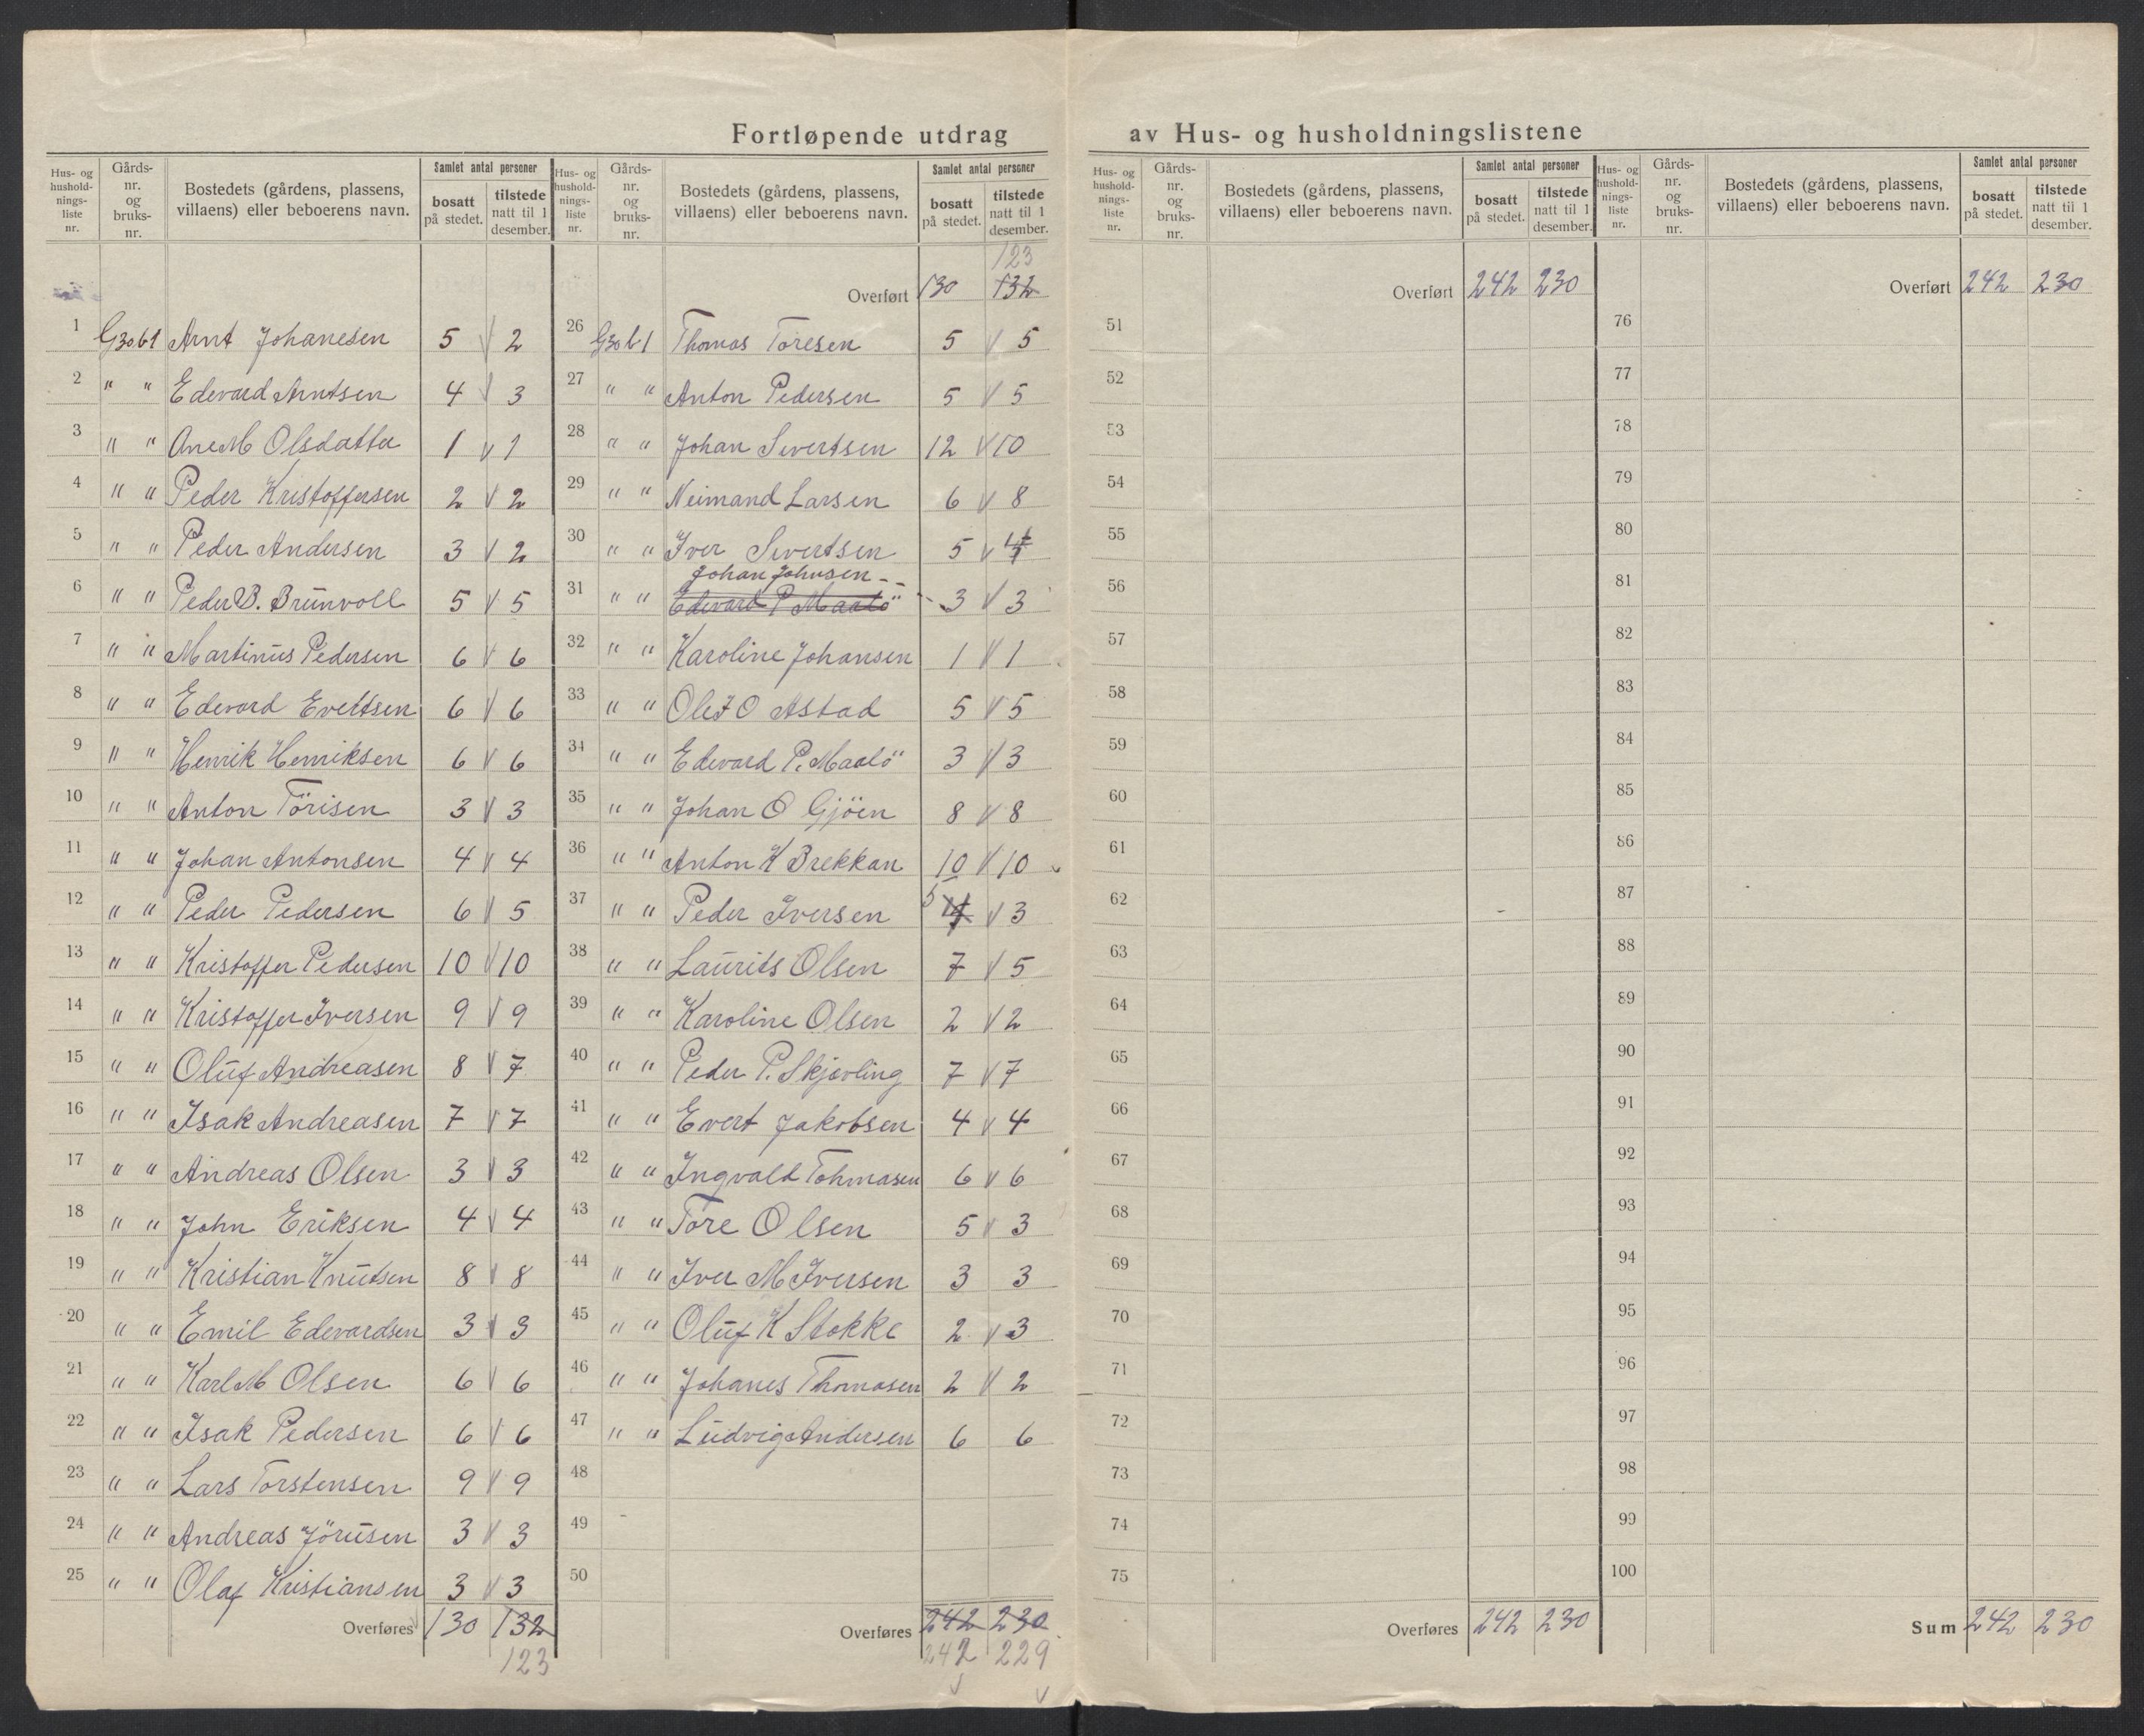 Fortløpende utdrag av Hus- og husholdningslistene
Hus- og hushold-nings-liste nr. | Gårds-nr. og bruks-nr. | Bostedets (gårdens, plassens, villaens) eller beboerens navn. | Samlet antal personer | bosatt på stedet. | tilstede natt til 1 desember.
1 G30 b1 Arnt Johanesen 5 V 2
2 " " Edevard Arntsen 4 V 3
3 " " Ane M Olsdatter 1 V 1
4 " " Peder Kristoffersen 2 V 2
5 " " Peder Andersen 3 V 2
6 " " Peder B. Brünvoll 5 V 5
7 " " Martinus Pedersen 6 V 6
8 " " Edevard Evertsen 6 V 6
9 " " Henrik Henriksen 6 V 6
10 " " Anton Törisen 3 V 3
11 " " Johan Antonsen 4 V 4
12 " " Peder Pedersen 6 V 5
13 " " Kristoffer Pedersen 10 V 10
14 " " Kristoffer Iversen 9 V 9
15 " " Oluf Andreasen 8 V 7
16 " " Isak Andreasen 7 V 7
17 " " Andreas Olsen 3 V 3
18 " " John Eriksen 4 V 4
19 " " Kristian Knutsen 8 V 8
20 " " Emil Edevardsen 3 V 3
21 " " Karl M Olsen 6 V 6
22 " " Isak Pedersen 6 V 6
23 " " Lars Torstensen 9 V 9
24 " " Andreas Jörusen 3 V 3
25 " " Olaf Kristiansen 3 V 3
Overføres 130 132
123
Hus- og hushold-nings-liste nr. | Gårds-nr. og bruks-nr. | Bostedets (gårdens, plassens, villaens) eller beboerens navn. | Samlet antal personer | bosatt på stedet. | tilstede natt til 1 desember.
123
Overført 130 132
26 G30 b1 Thomas Toresen 5 V 5
27 " " Anton Pedersen 5 V 5
28 " " Johan Sivertsen 12 V 10
29 " " Neimand Larsen 6 V 8
30 " " Iver Sivertsen 5 V 4
Johan Johnsen
31 " " Edevard P Maalö 3 V 3
32 " " Karoline Johansen 1 V 1
33 " " Ole J O Astad 5 V 5
34 " " Edevard P. Maalö 3 V 3
35 " " Johan O Gjöen 8 V 8
36 " " Anton K Brekkan 10 V 10
37 " " Peder Iversen 5 4 V 3
38 " " Laurits Olsen 7 V 5
39 " " Karoline Olsen 2 V 2
40 " " Peder P. Skjevling 7 V 7
41 " " Evert Jakobsen 4 V 4
42 " " Ingvald Tohmasen 6 V 6
43 " " Tore Olsen 5 V 3
44 " " Iver M Iversen 3 3
45 " " Oluf K Stokke 2 V 3
46 " " Johanes Thomasen 2 V 2
47 " " Ludvig Andersen 6 6
48
49
50
Overføres 242 230
242 229
V V
Hus- og hushold-nings-liste nr. | Gårds-nr. og bruks-nr. | Bostedets (gårdens, plassens, villaens) eller beboerens navn. | Samlet antal personer | bosatt på stedet. | tilstede natt til 1 desember.
Overført 242 230
51
52
53
54
55
56
57
58
59
60
61
62
63
64
65
66
67
68
69
70
71
72
73
74
75
Overføres 242 230
Hus- og hushold-nings-liste nr. | Gårds-nr. og bruks-nr. | Bostedets (gårdens, plassens, villaens) eller beboerens navn. | Samlet antal personer | bosatt på stedet. | tilstede natt til 1 desember.
Overført 242 230
76
77
78
79
80
81
82
83
84
85
86
87
88
89
90
91
92
93
94
95
96
97
98
99
100
Sum 242 230